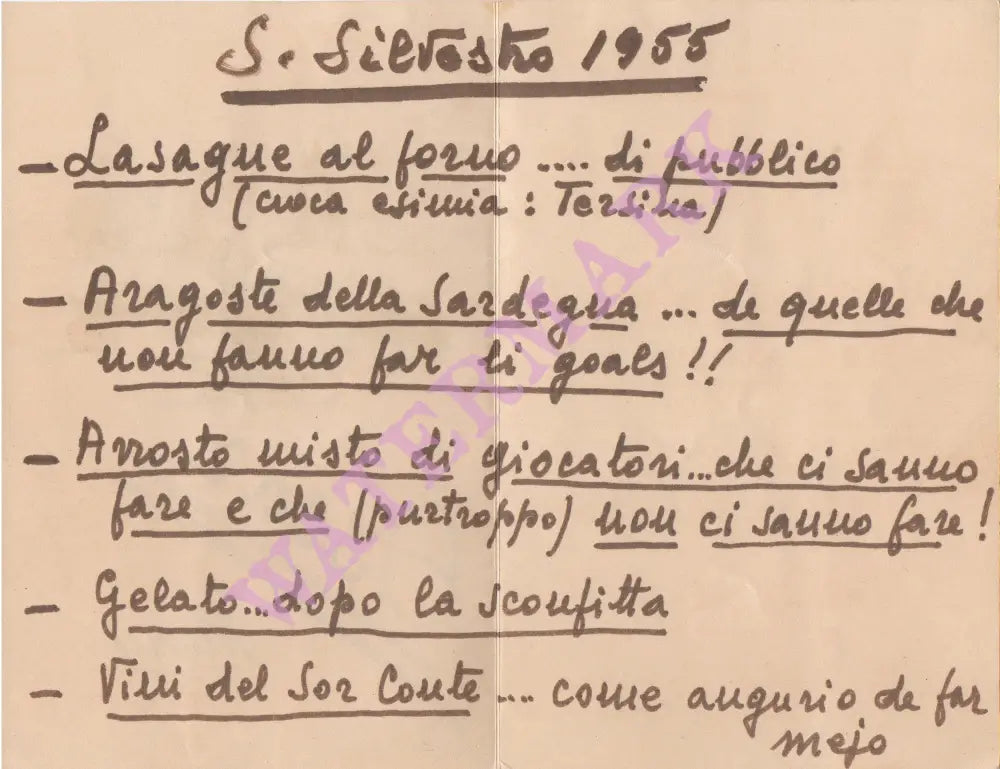 S. Silvestro 1955
- Lasagne al forno .... di pubblico
(cuoca esimia : Tersina)
- Aragoste della Sardegna ... de quelle che
non fanno far li goals!!
- Arrosto misto di giocatori...che ci sanno
fare e che (purtroppo) non ci sanno fare!
- Gelato...dopo la sconfitta
- Vini del Sor Conte .... come augurio de far
mejo
WATERMARK